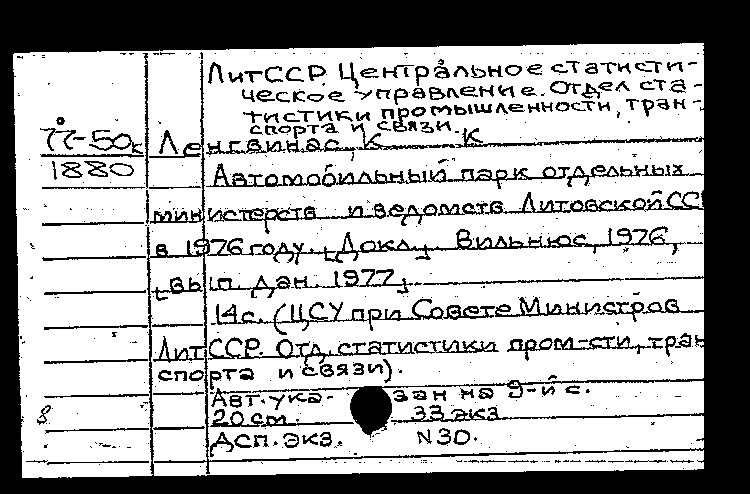 ЛитССР Центральное статисти-
ческое управление. Отдел ста-
тистики промышленности, тран-
спорта и связи.
77-50к Ленгвинас, К К
1880
Автомобильный парк отдельных
министерств и ведомств Литовской ССР
в 1976 году. [Докл.]. Вильнюс, 1976,
[вып. дан. 1977].
14с. (ЦСУ при Совете Министров
ЛитССР. Отд. статистики пром-сти, тран
спорта и связи).
Авт. ука- зан на 9-й с.
20 см. 33 экз
8 ДСП. экз. N30.